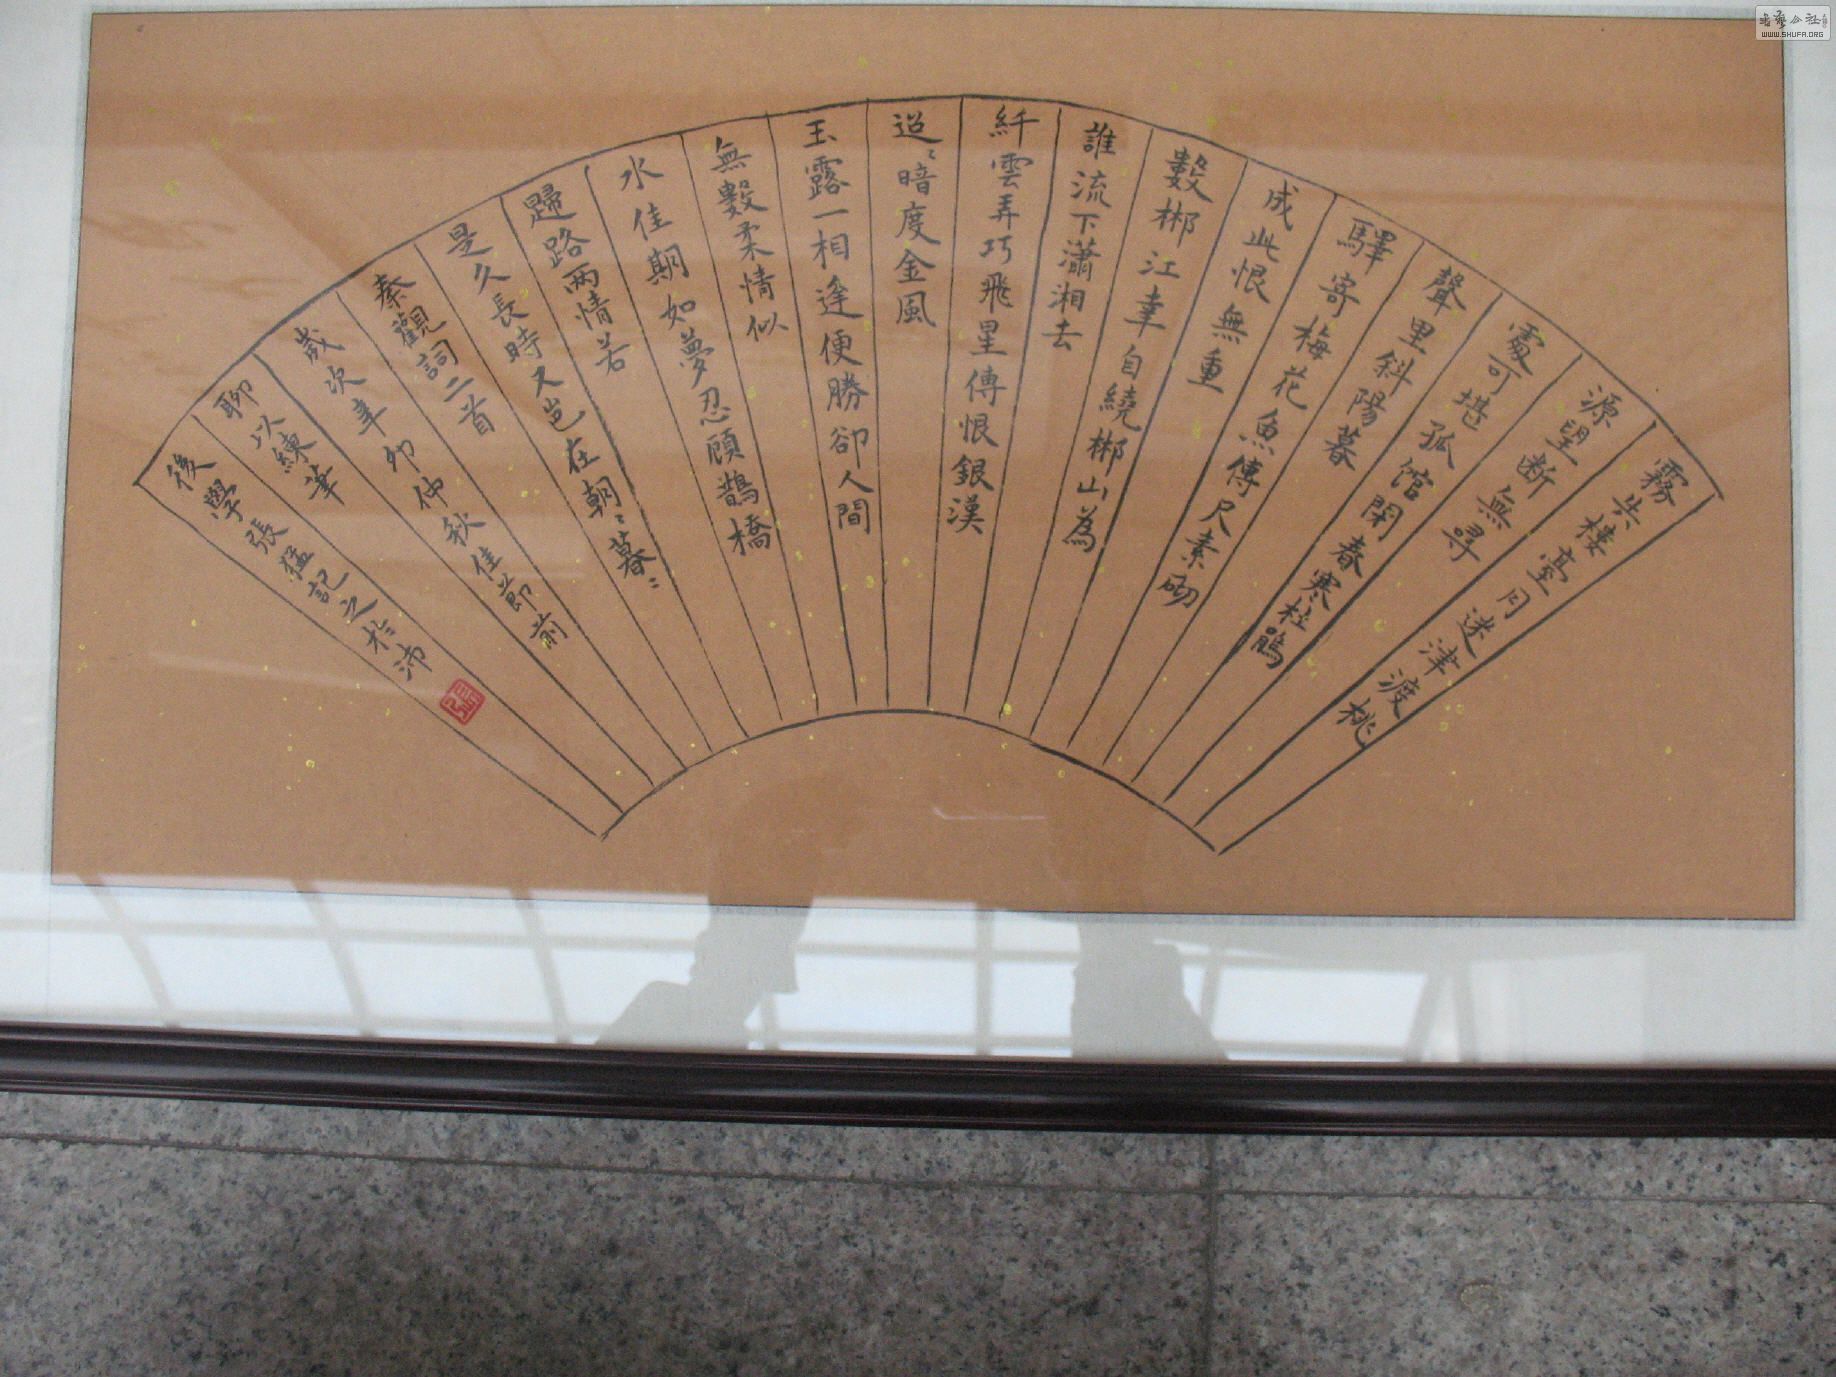 霧失樓臺月迷津渡桃
源望断無尋
處可堪孤館閉春寒杜鵑
聲里斜陽暮
驛寄梅花魚傳尺素砌
成此恨無重
數郴江幸自繞郴山為
誰流下瀟湘去
纤雲弄巧飛星傳恨銀漢
迢〻暗度金風
玉露一相逢便勝卻人間
無數柔情似
水佳期如夢忍顧鵲橋
歸路两情若
是久長時又岂在朝〻暮〻
秦觀詞二首
歲次辛卯仲秋佳節前
聊以練筆
後學張猛記之於沛
WWW.SHUFA.ORG